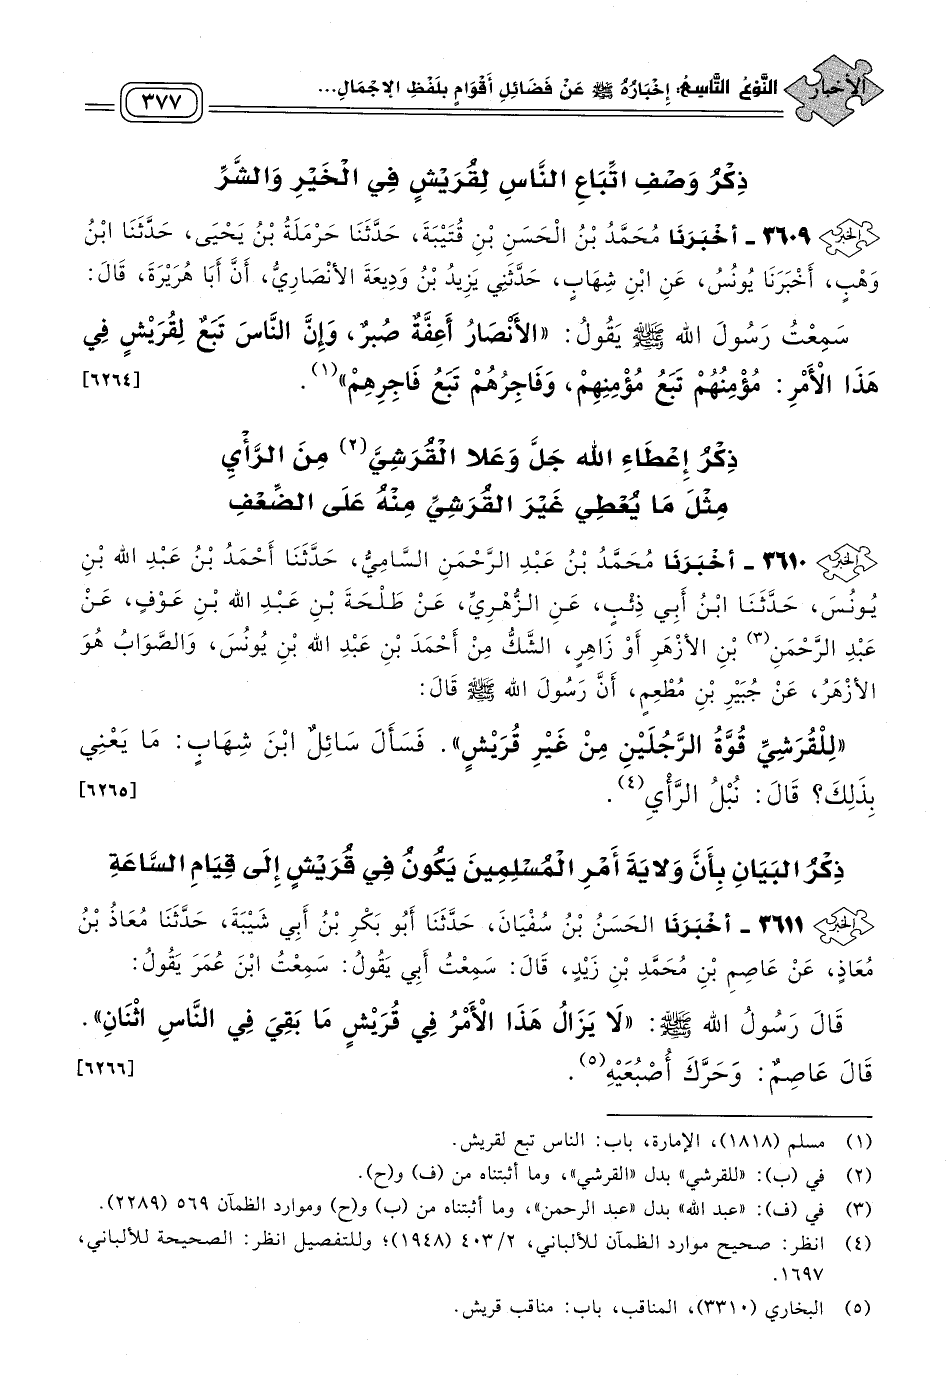 الأخبار النَّوْعُ التَّاسِعُ: إِخْبَارُهُ ﷺ عَنْ فَضَائِلِ أَقْوَامٍ بِلَفْظِ الإِجْمَالِ... ٣٧٧
ذِكْرُ وَصْفِ اتِّبَاعِ النَّاسِ لِقُرَيْشٍ فِي الْخَيْرِ وَالشَّرِّ
٣٦٠٩ - أَخْبَرَنَا مُحَمَّدُ بْنُ الْحَسَنِ بْنِ قُتَيْبَةَ، حَدَّثَنَا حَرْمَلَةُ بْنُ يَحْيَى، حَدَّثَنَا ابْنُ
وَهْبٍ، أَخْبَرَنَا يُونُسُ، عَنِ ابْنِ شِهَابٍ، حَدَّثَنِي يَزِيدُ بْنُ وَدِيعَةَ الأَنْصَارِيُّ، أَنَّ أَبَا هُرَيْرَةَ، قَالَ:
سَمِعْتُ رَسُولَ الله ﷺ يَقُولُ: «الأَنْصَارُ أَعِفَّةٌ صُبُرٌ، وَإِنَّ النَّاسَ تَبَعٌ لِقُرَيْشٍ فِي
هَذَا الْأَمْرِ: مُؤْمِنُهُمْ تَبَعُ مُؤْمِنِهِمْ، وَفَاجِرُهُمْ تَبَعُ فَاجِرِهِمْ»(١). [٦٢٦٤]
ذِكْرُ إِعْطَاءِ الله جَلَّ وَعَلا الْقُرَشِيَّ(٢) مِنَ الرَّأْيِ
مِثْلَ مَا يُعْطِي غَيْرَ الْقُرَشِيِّ مِنْهُ عَلَى الضِّعْفِ
٣٦١٠ - أَخْبَرَنَا مُحَمَّدُ بْنُ عَبْدِ الرَّحْمَنِ السَّامِيُّ، حَدَّثَنَا أَحْمَدُ بْنُ عَبْدِ الله بْنِ
يُونُسَ، حَدَّثَنَا ابْنُ أَبِي ذِئْبٍ، عَنِ الزُّهْرِيِّ، عَنْ طَلْحَةَ بْنِ عَبْدِ الله بْنِ عَوْفٍ، عَنْ
عَبْدِ الرَّحْمَنِ(٣) بْنِ الأَزْهَرِ أَوْ زَاهِرٍ، الشَّكُّ مِنْ أَحْمَدَ بْنِ عَبْدِ الله بْنِ يُونُسَ، وَالصَّوَابُ هُوَ
الأَزْهَرُ، عَنْ جُبَيْرِ بْنِ مُطْعِمٍ، أَنَّ رَسُولَ الله ﷺ قَالَ:
«لِلْقُرَشِيِّ قُوَّةُ الرَّجُلَيْنِ مِنْ غَيْرِ قُرَيْشٍ». فَسَأَلَ سَائِلٌ ابْنَ شِهَابٍ: مَا يَعْنِي
بِذَلِكَ؟ قَالَ: نُبْلُ الرَّأْيِ(٤). [٦٢٦٥]
ذِكْرُ البَيَانِ بِأَنَّ وَلايَةَ أَمْرِ الْمُسْلِمِينَ يَكُونُ فِي قُرَيْشٍ إِلَى قِيَامِ السَّاعَةِ
٣٦١١ - أَخْبَرَنَا الحَسَنُ بْنُ سُفْيَانَ، حَدَّثَنَا أَبُو بَكْرِ بْنُ أَبِي شَيْبَةَ، حَدَّثَنَا مُعَاذُ بْنُ
مُعَاذٍ، عَنْ عَاصِمِ بْنِ مُحَمَّدِ بْنِ زَيْدٍ، قَالَ: سَمِعْتُ أَبِي يَقُولُ: سَمِعْتُ ابْنَ عُمَرَ يَقُولُ:
قَالَ رَسُولُ الله ﷺ: «لَا يَزَالُ هَذَا الْأَمْرُ فِي قُرَيْشٍ مَا بَقِيَ فِي النَّاسِ اثْنَانِ».
قَالَ عَاصِمٌ: وَحَرَّكَ أُصْبُعَيْهِ(٥). [٦٢٦٦]
(١) مسلم (١٨١٨)، الإمارة، باب: الناس تبع لقريش.
(٢) في (ب): «للقرشي» بدل «القرشي»، وما أثبتناه من (ف) و(ح).
(٣) في (ف): «عبد الله» بدل «عبد الرحمن»، وما أثبتناه من (ب) و(ح) وموارد الظمآن ٥٦٩ (٢٢٨٩).
(٤) انظر: صحيح موارد الظمآن للألباني، ٤٠٣/٢ (١٩٤٨)؛ وللتفصيل انظر: الصحيحة للألباني،
١٦٩٧.
(٥) البخاري (٣٣١٠)، المناقب، باب: مناقب قريش.